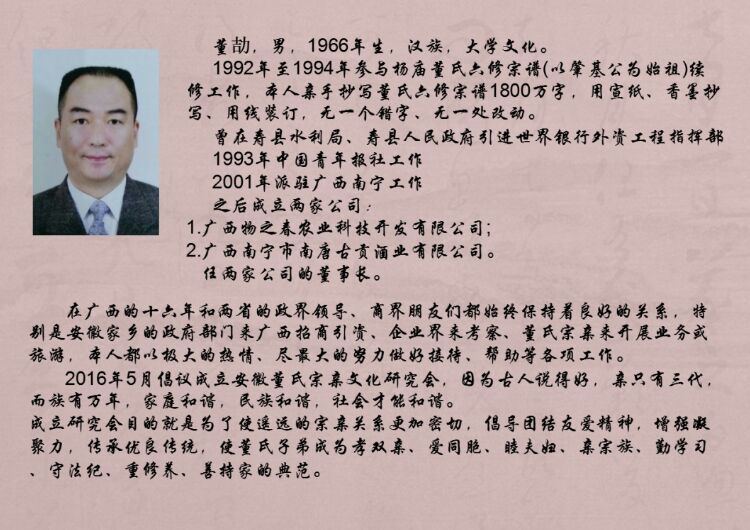 董劼，男，1966年生，汉族，大学文化。
1992年至1994年参与杨庙董氏六修宗谱(以肇基公为始祖)续
修工作，本人亲手抄写董氏六修宗谱1800万字，用宣纸、香墨抄
写、用线装订，无一个错字、无一处改动。
曾在寿县水利局、寿县人民政府引进世界银行外资工程指挥部
1993年中国青年报社工作
2001年派驻广西南宁工作
之后成立两家公司：
1.广西物之春农业科技开发有限公司；
2.广西南宁市南唐古贡酒业有限公司。
任两家公司的董事长。
在广西的十六年和两省的政界领导、商界朋友们都始终保持着良好的关系，特
别是安徽家乡的政府部门来广西招商引资、企业界来考察、董氏宗亲来开展业务或
旅游，本人都以极大的热情、尽最大的努力做好接待、帮助等各项工作。
2016年5月倡议成立安徽董氏宗亲文化研究会，因为古人说得好，亲只有三代，
而族有万年，家庭和谐，民族和谐，社会才能和谐。
成立研究会目的就是为了使遥远的宗亲关系更加密切，倡导团结友爱精神，增强凝
聚力，传承优良传统，使董氏子弟成为孝双亲、爱同胞、睦夫妇、亲宗族、勤学习
、守法纪、重修养、善持家的典范。